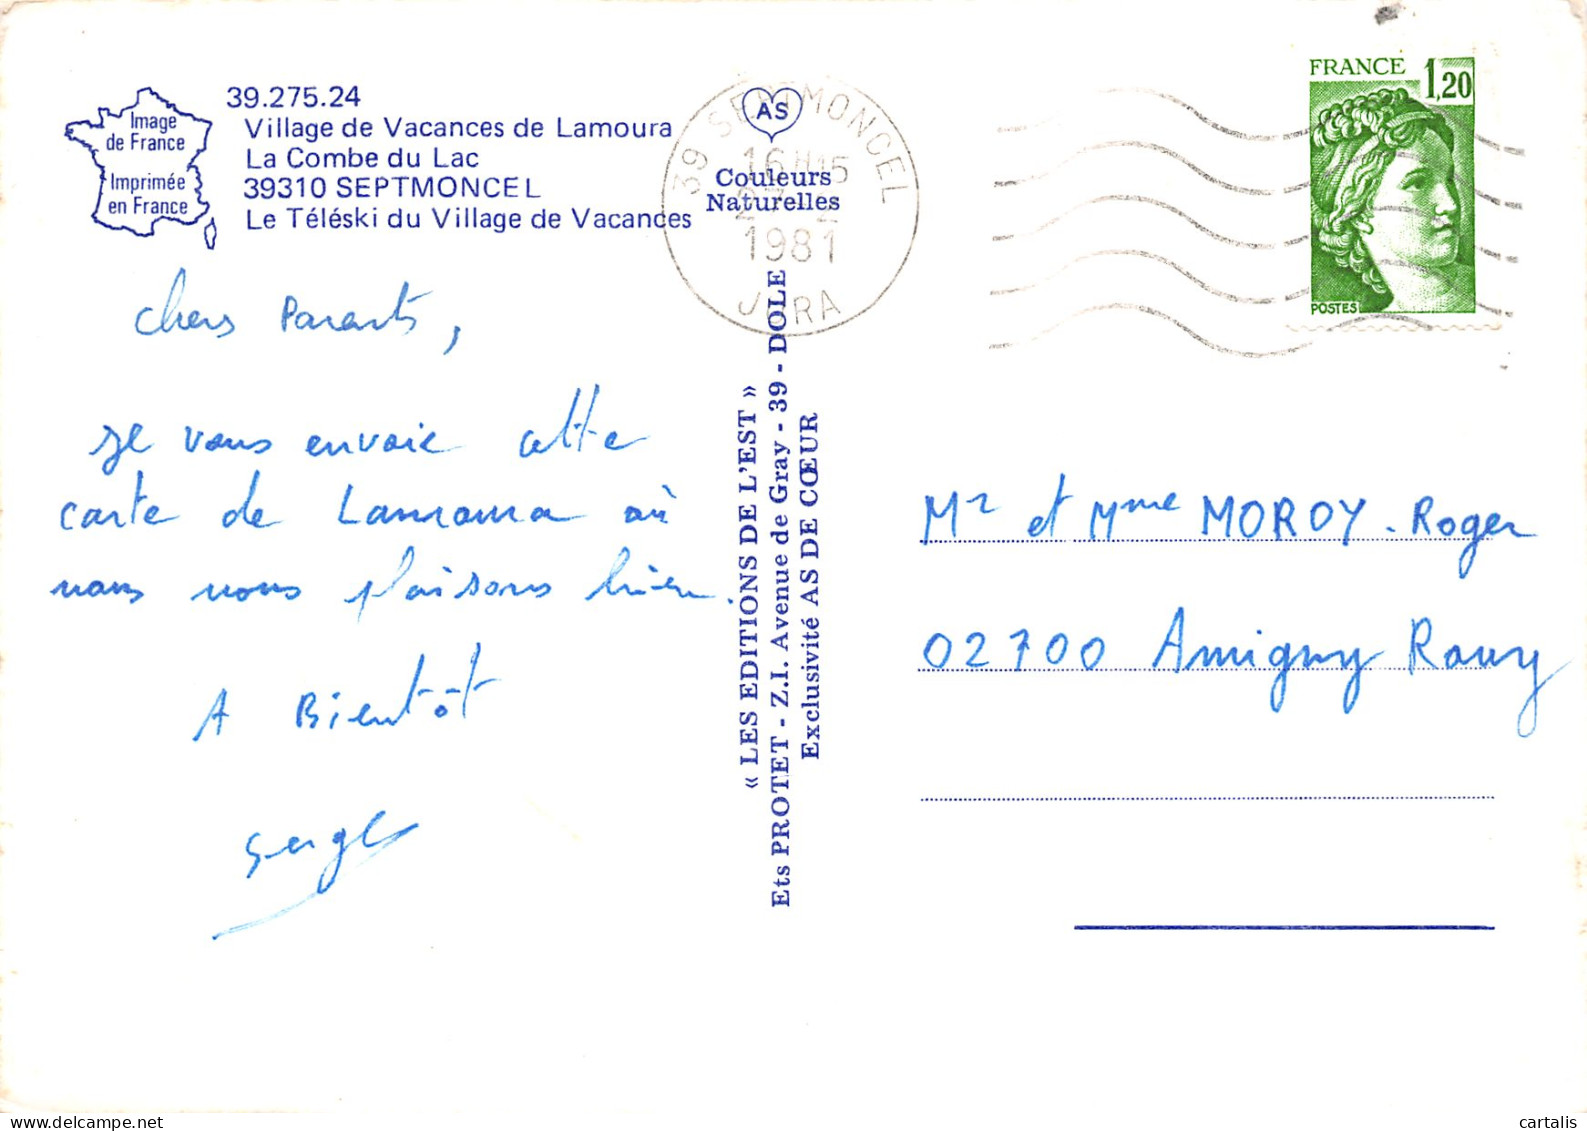 Image
de France
Imprimée
en France
39.275.24
Village de Vacances de Lamoura
La Combe du Lac
39310 SEPTMONCEL
Le Téléski du Village de Vacances
AS
Couleurs
Naturelles
39 SEPTMONCEL
16H15
1981
JURA
FRANCE 1,20
POSTES
Chers Parents,
Je vous envoie cette
carte de Lamoura où
nous nous plaisons bien.
A Bientôt
Serge
« LES EDITIONS DE L'EST »
Ets PROTET - Z.I. Avenue de Gray - 39 - DOLE
Exclusivité AS DE CŒUR
Mr et Mme MOROY. Roger
02700 Amigny Rouy
cartalis